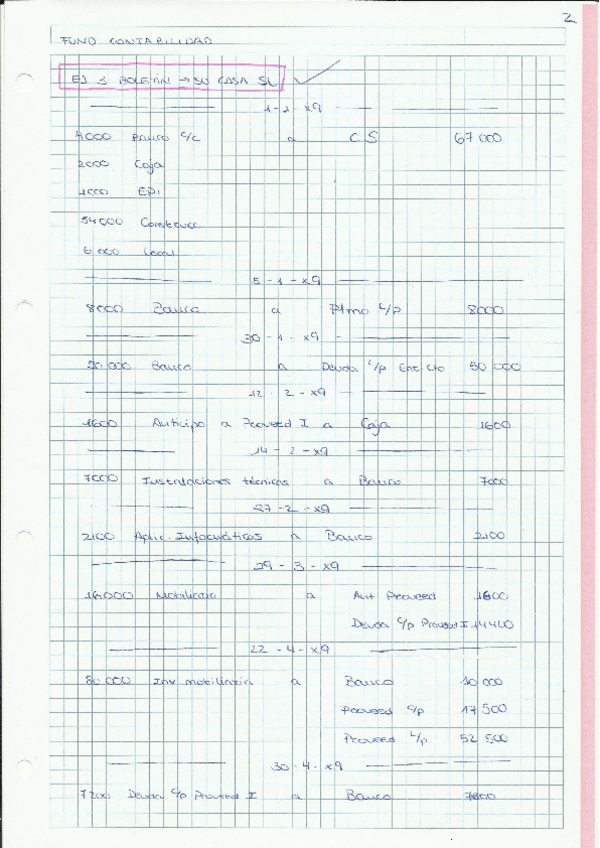 2
FUND. CONTABILIDAD
EJ 3 BOLETIN → SU CASA SL
1-1-x9
4000 Banco c/c a CS 67000
2000 Caja
1000 EPI
54000 Construcc
6000 Local
5-1-x9
8000 Banco a Ptmo L/p 8000
30-1-x9
50000 Banco a Deuda L/p Ent Cto 50000
12-2-x9
1600 Anticipo a Proveed I a Caja 1600
14-2-x9
7000 Instalaciones técnicas a Banco 7000
27-2-x9
2100 Aplic. Informáticas a Banco 2100
29-3-x9
16000 Mobiliario a Ant Proveed 1600
Deuda c/p Proveed I 14400
22-4-x9
80000 Inv mobiliaria a Banco 10000
Proveed c/p 17500
Proveed L/p 52500
30-4-x9
7200 Deuda c/p Proveed I a Banco